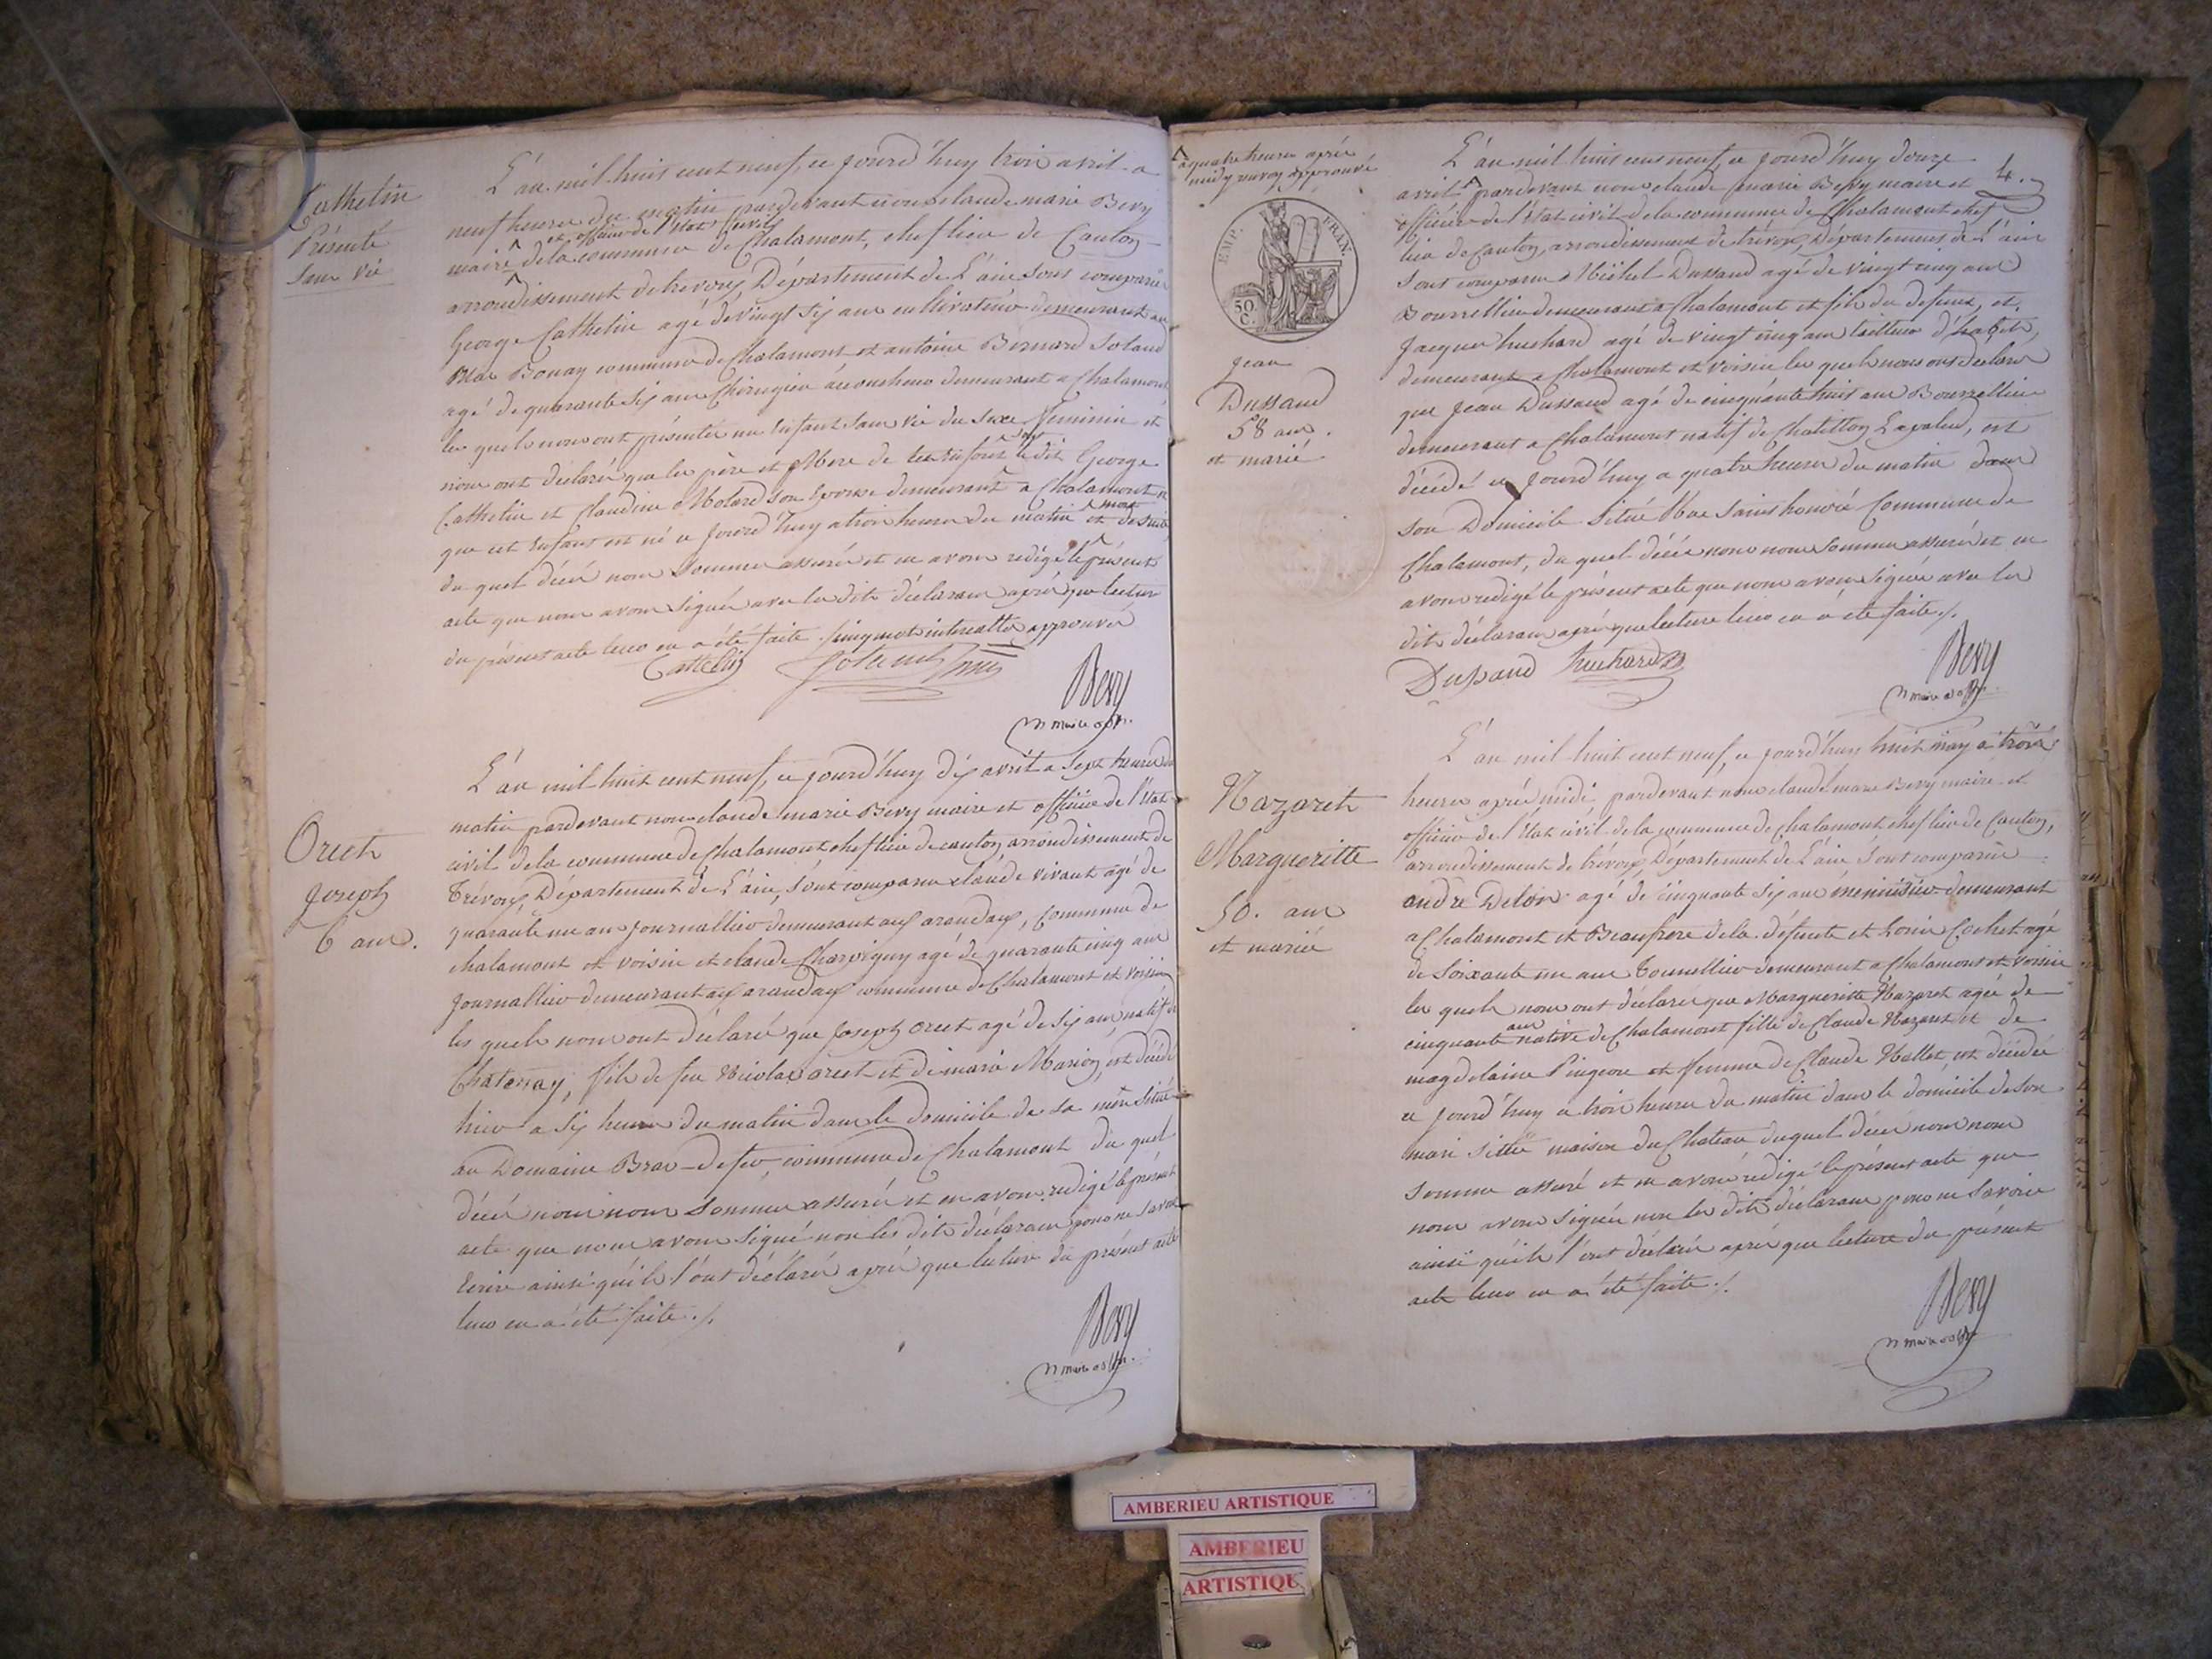 Cathelin
Présenté
sans vie
L'an mil huit cent neuf, ce jourd'huy trois avril a
neuf heures du matin pardevant nous claude marie Bevy
maire et officier de l'état civil de la commune de Chalamont, chef lieu de Canton
arrondissement de trevoux Département de L'ain sont comparus
George Cathelin agé de vingt six ans cultivateur demeurant au
Bonay commune de Chalamont et antoine Bernard
agé de quarante six ans Chirurgien accoucheur demeurant a Chalamont
les quels nous ont présenté un enfant sans vie du sexe feminin et
nous ont déclaré que les père et Mere de enfant sont le dit George
Cathelin et Claudine Molard son Epouse demeurant a Chalamont et
que cet enfant est né ce jourd'huy a trois heures du matin et mort de suite
du quel décès nous sommes assuré et en avons redigé le présent
acte que nous avons signé avec les dits déclarans après que lecture
du présent acte leur en a été faite. cinq mots intercallés approuvés
Cathelin
Bevy
maire
Orcet
Joseph
6 ans.
L'an mil huit cent neuf, ce jourd'huy dix avril a sept heures du
matin pardevant nous claude marie Bevy maire et officier de l'état
civil de la commune de Chalamont chef lieu de canton arrondissement de
Trévoux, Département de L'ain, sont comparus claude vivant agé de
quarante un ans journallier demeurant aux arandaux, commune de
chalamont et voisin et claude Charvigny agé de quarante cinq ans
journallier demeurant aux arandaux commune de Chalamont et voisin
les quels nous ont déclaré que Joseph orcet agé de six ans natif de
Chatenay, fils de feu Nicolas orcet et de marie Marion, est décédé
hier a six heures du matin dans le domicile de sa mère situé
au Domaine commune de Chalamont du quel
décès nous nous sommes assuré et en avons redigé le présent
acte que nous avons signé non les dits déclarans pour ne savoir
écrire ainsi qu'ils l'ont déclaré après que lecture du présent acte
leur en a été faite ./.
Bevy
maire
a quatre heures après
midy renvoy approuvé
EMP. FRAN.
50 C.
4.
Jean
Dussaud
58 ans.
et marié
L'an mil huit cent neuf, ce jourd'huy douze
avril pardevant nous claude marie Bevy maire et
officier de l'état civil de la commune de Chalamont chef
lieu de Canton, arrondissement de trévoux, Département de L'ain
sont comparus Michel Dussaud agé de vingt cinq ans
Bourrellier demeurant a Chalamont et fils du defunt, et
Jacques huchard agé de vingt cinq ans tailleur d'habits,
demeurant a Chalamont et voisin les quels nous ont declaré
que Jean Dussaud agé de cinquante huit ans Bourrellier
demeurant a Chalamont natif de Chatillon Lapalud, est
décédé ce jourd'huy a quatre heures du matin dans
son Domicile situé Rue saint honoré Commune de
Chalamont, du quel décès nous nous sommes assurés et en
avons redigé le présent acte que nous avons signé avec les
dits déclarans après que lecture leur en a été faite ./.
Dussaud huchard
Bevy
maire
Nazareth
Margueritte
50. ans
et mariée
L'an mil huit cent neuf, ce jourd'huy huit may a trois
heures après midi pardevant nous claude marie Bevy maire et
officier de l'état civil de la commune de Chalamont chef lieu de Canton,
arrondissement de trévoux Département de L'ain sont comparus
andré Delon agé de cinquante six ans menuisier demeurant
a Chalamont et Beaufrere de la défunte et Louis Cochet agé
de soixante un ans Tonnellier demeurant a Chalamont et voisin
les quels nous ont déclaré que Margueritte Nazaret agée de
cinquante ans native de Chalamont fille de Claude Nazaret et de
magdelaine Pingeon et femme de Claude Mollet est décédée
ce jourd'huy a trois heures du matin dans le domicile de son
mari sittué maison du Chateau duquel décès nous nous
sommes assuré et en avons redigé le présent acte que
nous avons signé non les dits déclarans pour ne savoir
ainsi qu'ils l'ont déclaré après que lecture du présent
acte leur en a été faite ./.
Bevy
maire
AMBERIEU ARTISTIQUE
AMBERIEU
ARTISTIQUE